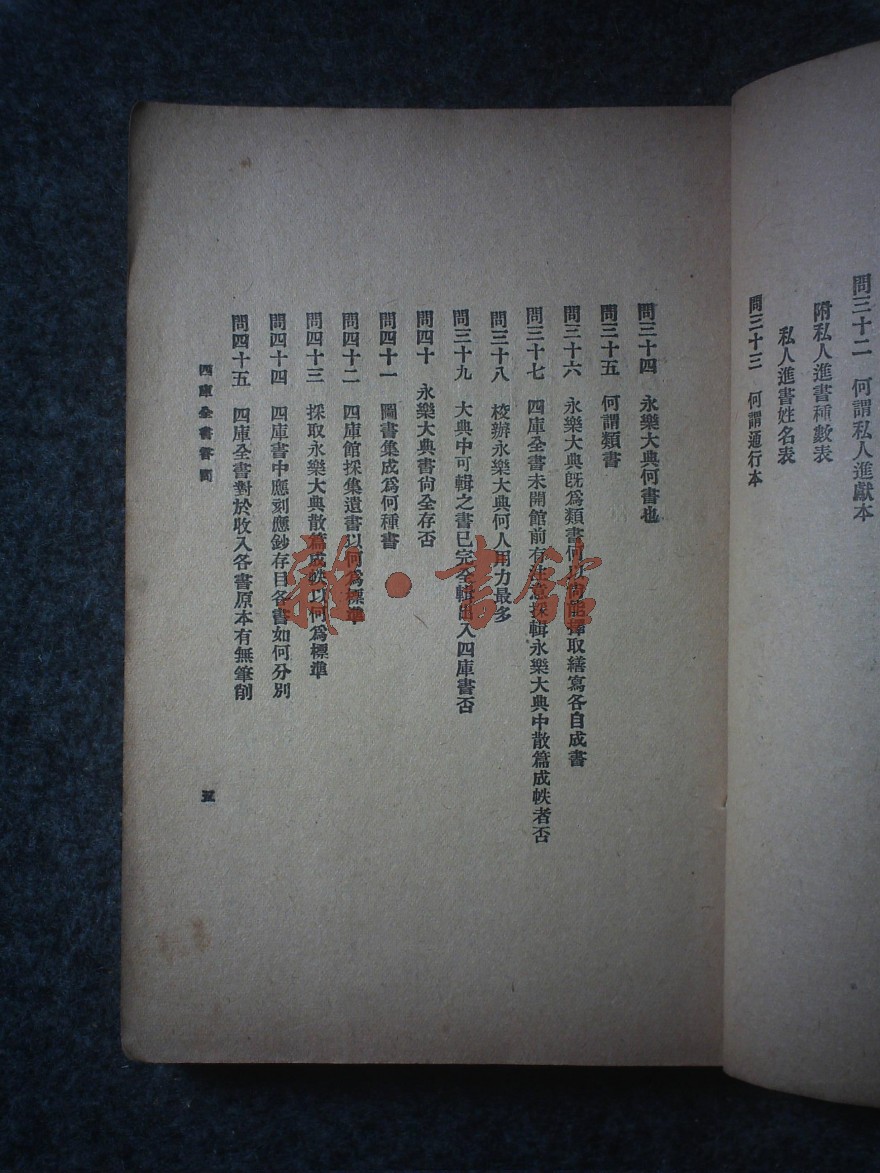 問三十二　何謂私人進獻本
附私人進書種數表
私人進書姓名表
問三十三　何謂通行本
問三十四　永樂大典何書也
問三十五　何謂類書
問三十六　永樂大典旣爲類書何以尙能擇取繕寫各自成書
問三十七　四庫全書未開館前有注意採輯永樂大典中散篇成帙者否
問三十八　校辦永樂大典何人用力最多
問三十九　大典中可輯之書已完全輯出入四庫書否
問四十　永樂大典書尙全存否
問四十一　圖書集成爲何種書
問四十二　四庫館採集遺書以何爲標準
問四十三　採取永樂大典散篇成帙以何爲標準
問四十四　四庫書中應刻應鈔存目各書如何分別
問四十五　四庫全書對於收入各書原本有無筆削
四庫全書答問
五
雜·書館